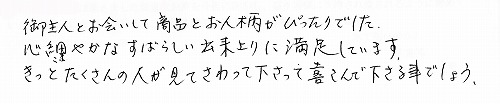 御主人とお会いして商品とお人柄がぴったりでした.
心細やかなすばらしい出来上りに満足しています.
きっとたくさんの人が見てさわって下さって喜さんで下さる事でしょう.